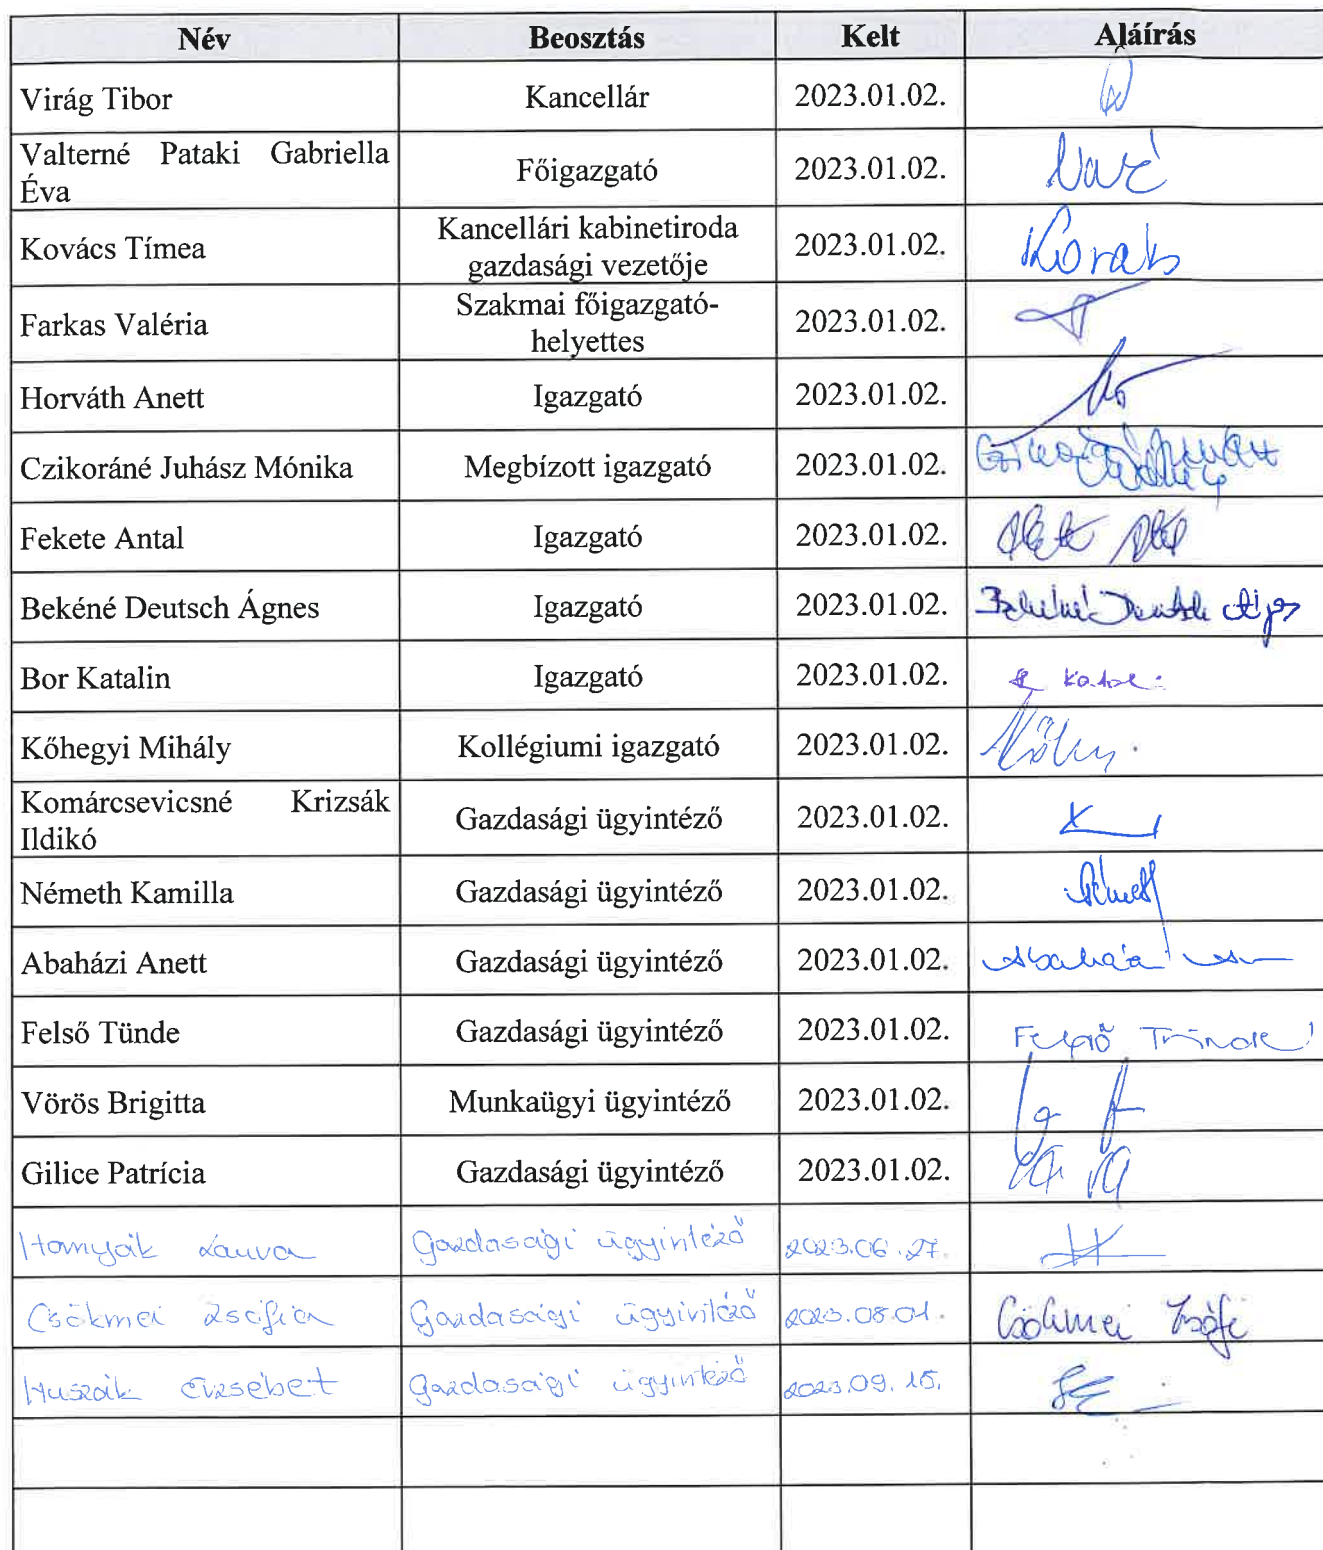 Név Beosztás Kelt Aláírás
Virág Tibor Kancellár 2023.01.02.
Valterné Pataki Gabriella
Éva Főigazgató 2023.01.02.
Kovács Tímea Kancellári kabinetiroda
gazdasági vezetője 2023.01.02. Kovács
Farkas Valéria Szakmai főigazgató-
helyettes 2023.01.02.
Horváth Anett Igazgató 2023.01.02.
Czikoráné Juhász Mónika Megbízott igazgató 2023.01.02.
Fekete Antal Igazgató 2023.01.02.
Bekéné Deutsch Ágnes Igazgató 2023.01.02. Bekéné Deutsch Ágnes
Bor Katalin Igazgató 2023.01.02.
Kőhegyi Mihály Kollégiumi igazgató 2023.01.02.
Komárcsevicsné Krizsák
Ildikó Gazdasági ügyintéző 2023.01.02.
Németh Kamilla Gazdasági ügyintéző 2023.01.02. Németh
Abaházi Anett Gazdasági ügyintéző 2023.01.02. Abaházi
Felső Tünde Gazdasági ügyintéző 2023.01.02. Felső Tünde
Vörös Brigitta Munkaügyi ügyintéző 2023.01.02.
Gilice Patrícia Gazdasági ügyintéző 2023.01.02.
Hornyák Laura Gazdasági ügyintéző 2023.06.27.
Csökmei Zsófia Gazdasági ügyintéző 2023.08.01. Csökmei Zsófi
Huszák Erzsébet Gazdasági ügyintéző 2023.09.15.